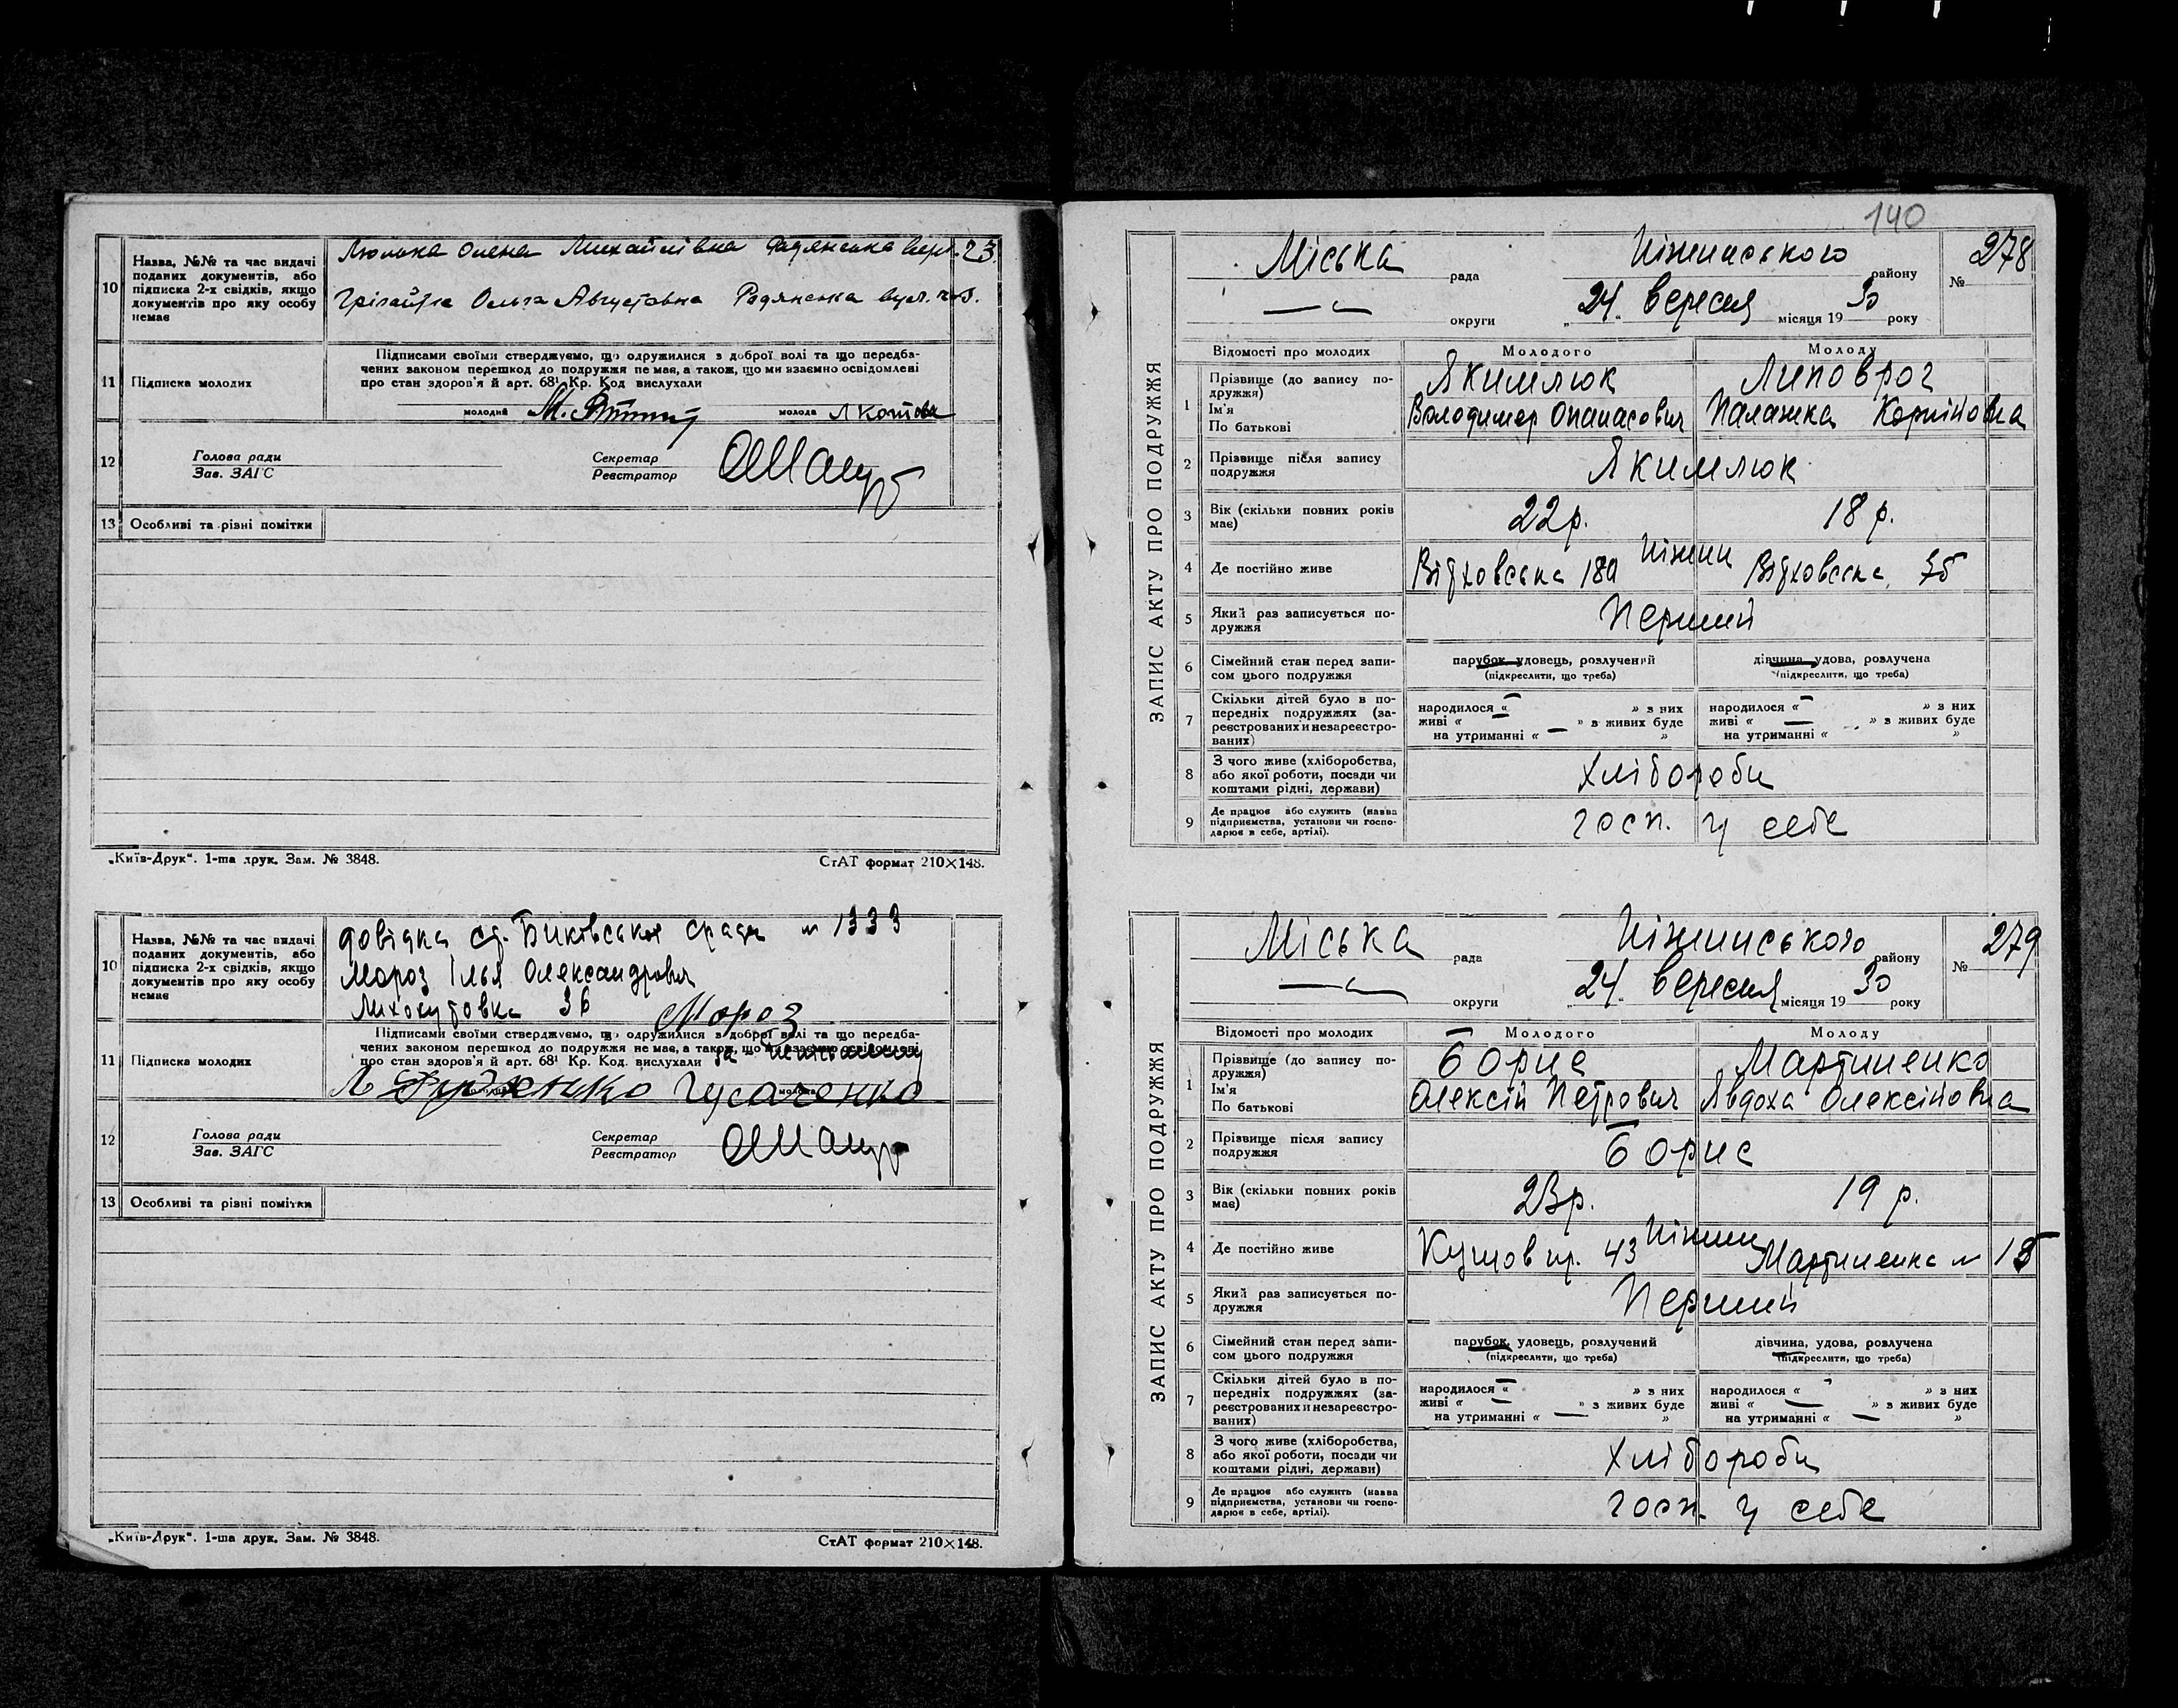 10 Назва, №№ та час видачі поданих документів, або підписка 2-х свідків, якщо документів про яку особу немає
Олена Михайлівна Радянська 23.
Ольга Августовна Радянська вул.
11 Підписка молодих
Підписами своїми стверджуємо, що одружилися з доброї волі та що передба-
чених законом перешкод до подружжя не має, а також, що ми взаємно освідомлені
про стан здоров'я й арт. 68¹ Кр. Код вислухали
молодий М. молода
12 Голова ради
Зав. ЗАГС
Секретар
Реєстратор
13 Особливі та різні помітки
„Київ-Друк“. 1-ша друк. Зам. № 3848. СтАТ формат 210×148.
10 Назва, №№ та час видачі поданих документів, або підписка 2-х свідків, якщо документів про яку особу немає
довідка ради № 1333
Мороз Ілья Олександрович
36 Мороз
11 Підписка молодих
Підписами своїми стверджуємо, що одружилися з доброї волі та що передба-
чених законом перешкод до подружжя не має, а також, що ми взаємно освідомлені
про стан здоров'я й арт. 68¹ Кр. Код. вислухали
Гусаченко
12 Голова ради
Зав. ЗАГС
Секретар
Реєстратор
13 Особливі та різні помітки
„Київ-Друк“. 1-ша друк. Зам. № 3848. СтАТ формат 210×148.
140
ЗАПИС АКТУ ПРО ПОДРУЖЖЯ
Міська рада Ніжинського району № 278
— округи „24„ вересня місяця 1930 року
Відомості про молодих Молодого Молоду
1 Прізвище (до запису по-
дружжя) Якимлюк Липоврог
Ім'я
По батькові Володимер Опанасович Палажка Корніновна
2 Прізвище після запису
подружжя Якимлюк
3 Вік (скільки повних років
має) 22 р. 18 р.
4 Де постійно живе 18а Ніжин
5 Який раз записується по-
дружжя Перший
6 Сімейний стан перед запи-
сом цього подружжя парубок, удовець, розлучений дівчина, удова, розлучена
(підкреслити, що треба) (підкреслити, що треба)
7 Скільки дітей було в по-
передніх подружжях (за-
реєстрованих и незареєстро-
ваних)
народилося « — » з них народилося « — » з них
живі « — » з живих буде живі « — » з живих буде
на утриманні « — » на утриманні « — »
8 З чого живе (хліборобства,
або якої роботи, посади чи
коштами рідні, держави) Хлібороби
9 Де працює або служить (назва
підприємства, установи чи госпо-
дарює в себе, артілі). госп. у себе
ЗАПИС АКТУ ПРО ПОДРУЖЖЯ
Міська рада Ніжинського району № 279
— округи „24„ вересня місяця 1930 року
Відомості про молодих Молодого Молоду
1 Прізвище (до запису по-
дружжя) Борис Мартиненко
Ім'я
По батькові Олексій Петрович Явдоха Олексіновна
2 Прізвище після запису
подружжя Борис
3 Вік (скільки повних років
має) 23р. 19 р.
4 Де постійно живе 43 Ніжин Мартиненка №
5 Який раз записується по-
дружжя Перший
6 Сімейний стан перед запи-
сом цього подружжя парубок, удовець, розлучений дівчина, удова, розлучена
(підкреслити, що треба) (підкреслити, що треба)
7 Скільки дітей було в по-
передніх подружжях (за-
реєстрованих и незареєстро-
ваних)
народилося « — » з них народилося « — » з них
живі « — » з живих буде живі « — » з живих буде
на утриманні « — » на утриманні « — »
8 З чого живе (хліборобства,
або якої роботи, посади чи
коштами рідні, держави) Хлібороби
9 Де працює або служить (назва
підприємства, установи чи госпо-
дарює в себе, артілі). госп. у себе